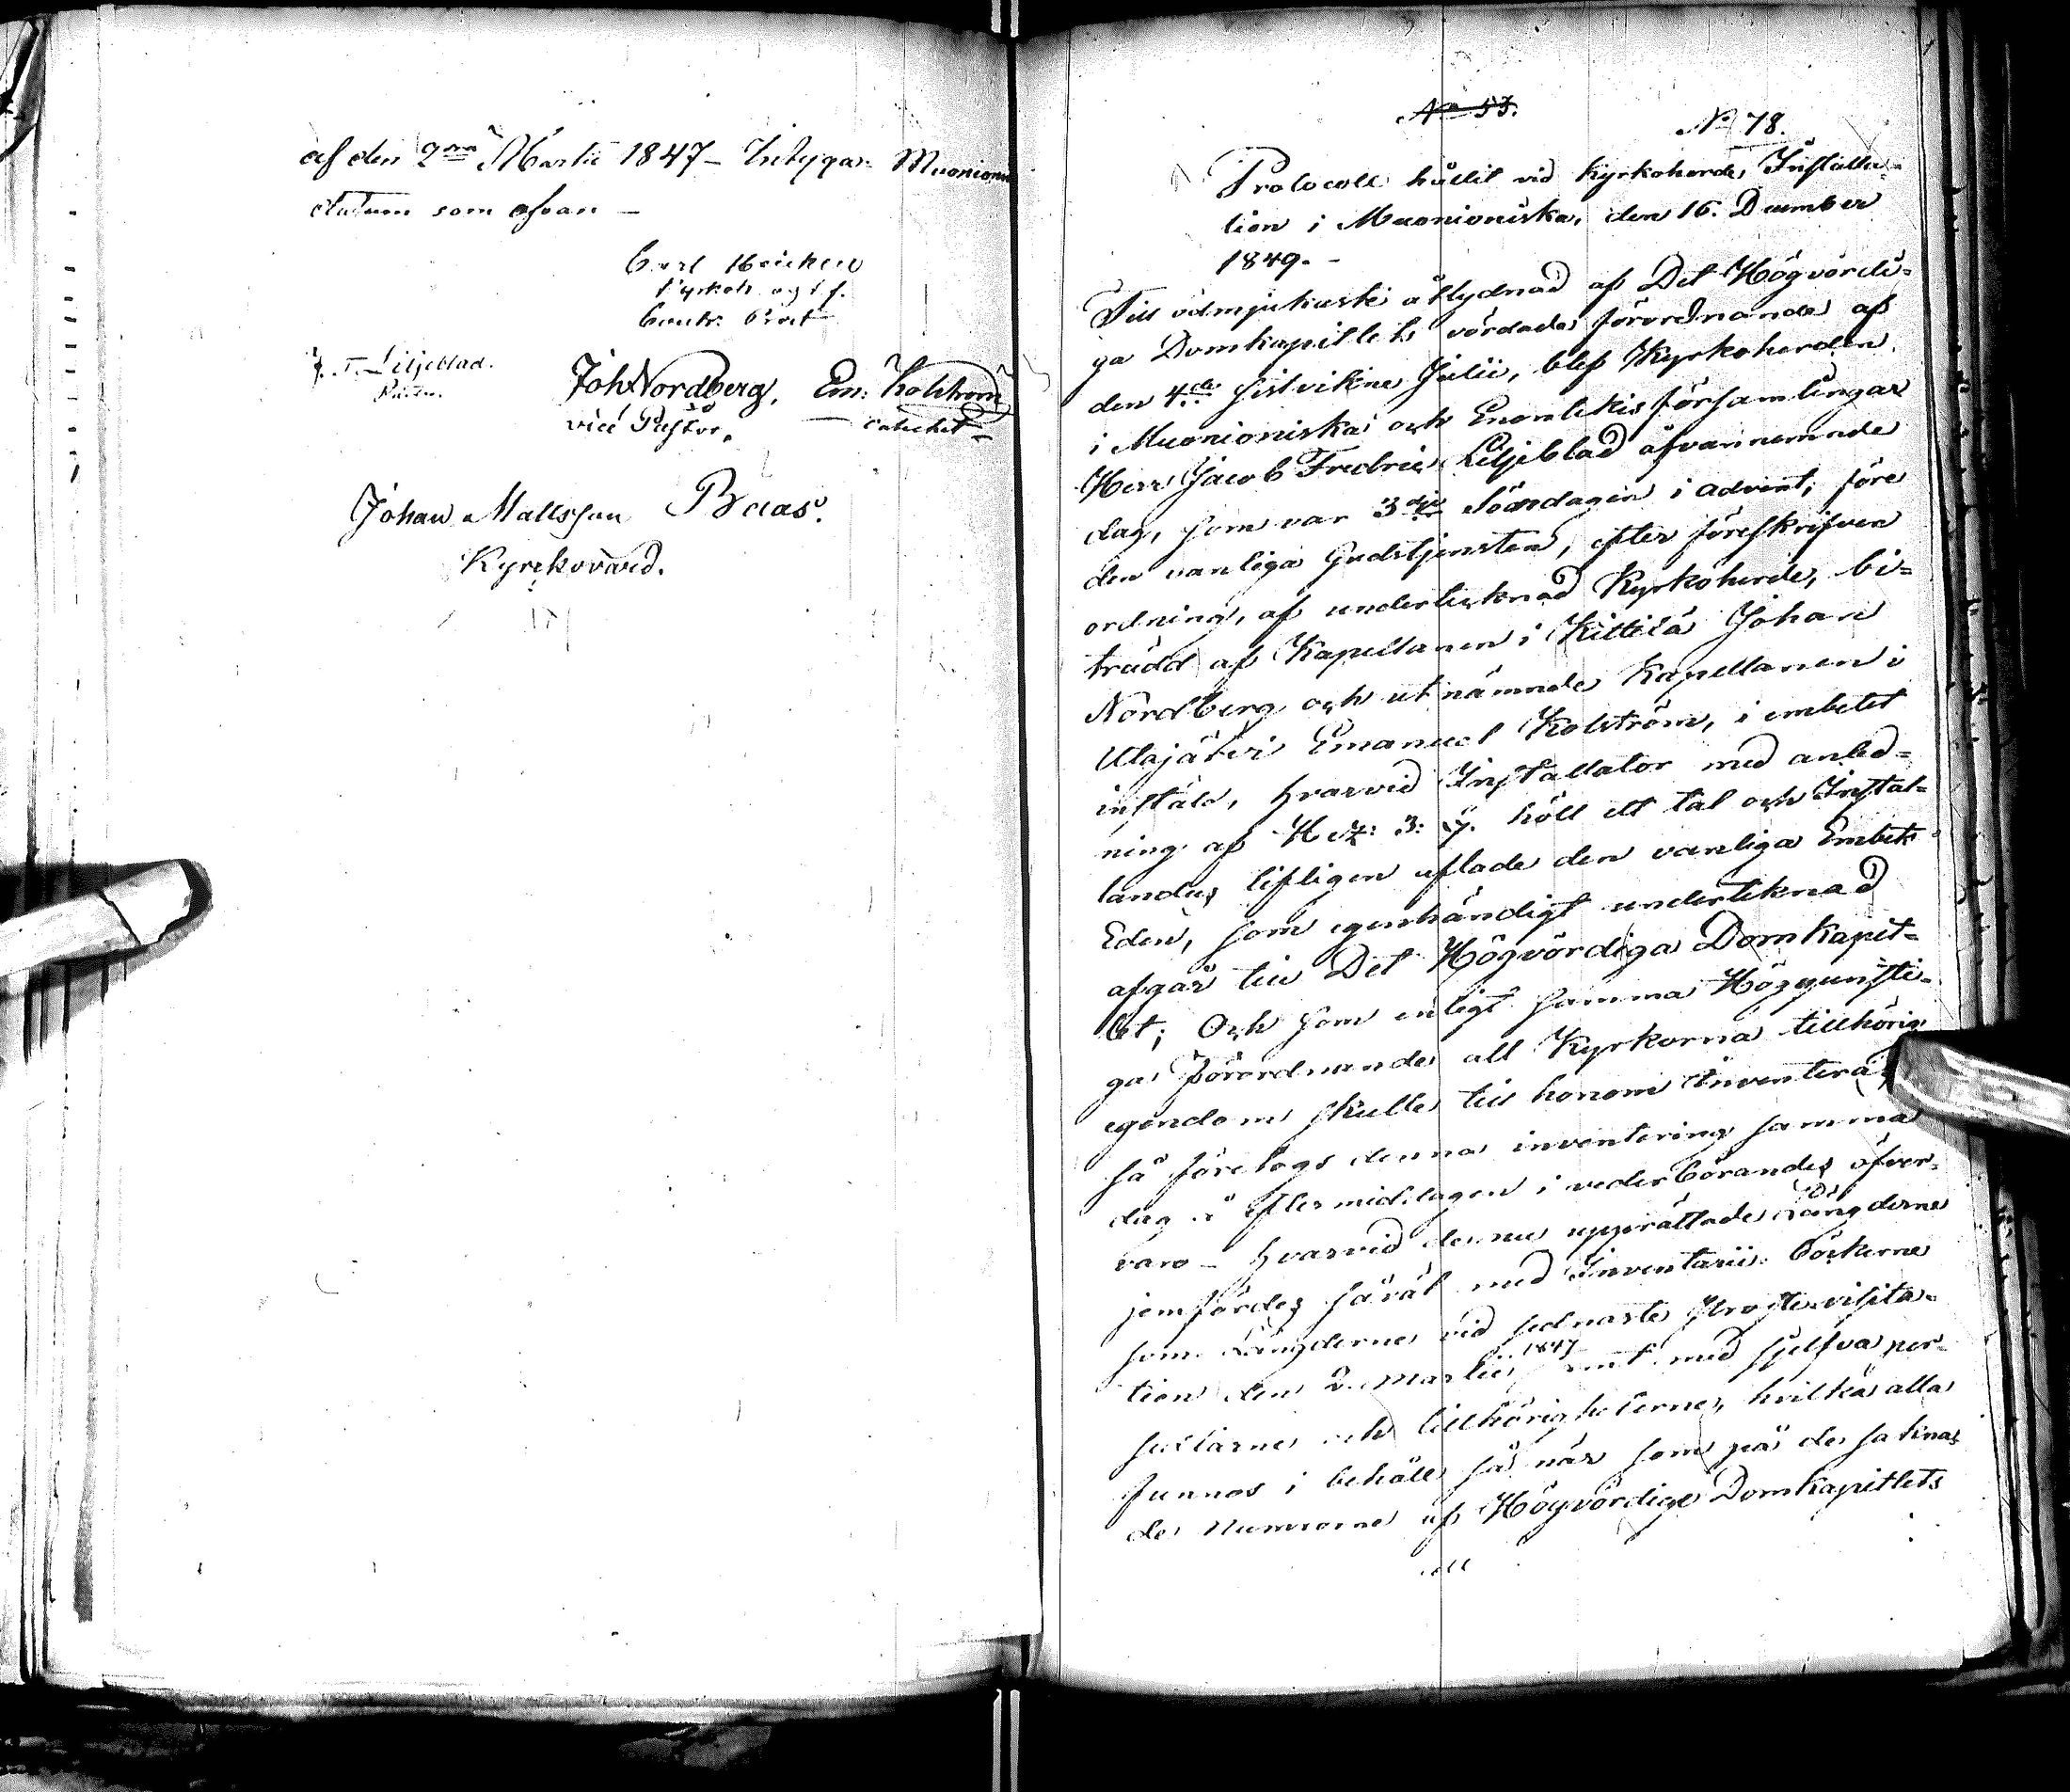 af den 2dra Martii 1847 – Intygar. Muonionis
datum som ofvan –
Carl Heickell
Kyrkoh. og t. f.
Contr. Prost
J. F. Liljeblad.
Joh Nordberg. Em: Kolström
vice Pastor. catechet –
Johan Mattsson Baas.
Kyrkovärd.
No 53.
No 78.
Protocoll hållit vid Kyrkoherde Installa-
tion i Muonioniska, den 16. December
1849. –
Till ödmjukaste åtlydnad af Det Högvördi-
ga Domkapitlets vördade förordnande af
den 4de sistvikne Julii, blef Kyrkoherden
i Muonioniska och Enontekis församlingar
Herr Jacob Fredric Liljeblad ofvannemnde
dag, som var 3dje Söndagen i advent, före
den vanliga Gudstjensten, efter föreskrifven
ordning, af undertecknad Kyrkoherde, bi-
trädd af Kapellanen i Kittilä Johan
Nordberg och utnämnde Kapellanen i
Utajärvi Emanuel Kolström, i embetet
inställd, hvarvid Installator med anled-
ning af Hez: 3: 17. höll ett tal och Instal-
landus lifligen aflade den vanliga Embets
Eden, som egenhändigt underteknad
afgår till Det Högvördiga Domkapit-
let; Och som enligt samma Höggunsti-
ga förordnande all Kyrkorna tillhörig
egendom skulle till honom inventeras,
så företogs denna inventering samma
dag å eftermiddagen i vederbörandes öfver-
varo – hvarvid de nu upprättade Längderne
jemfördes såväl med Inventarii böckerne
som Längderne vid sednaste Prosteвisita-
tion den 2. Martii 1847 samt med sjelfva per-
sedlarne och tillhörigheterne, hvilka alla
funnos i behåll så när som på de saknas
de Numrorne af Högvördiga Domkapitlets